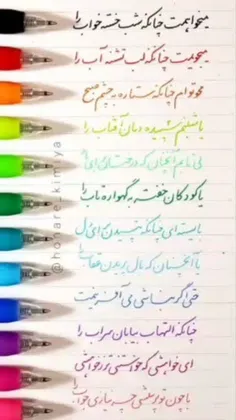 میخواهمت چنانکه شب خسته خواب را
میجویمت چنانکه لب تشنه آب را
محو توام چنانکه ستاره به چشم صبح
یا شبنم سپیده دمان آفتاب را
بی تابم آنچنان که درختان برای باد
یا کودکان خفته به گهواره تاب را
بایسته ای چنانکه تپیدن برای دل
یا آنچنان که بال پریدن عقاب را
حتی اگر نباشی می آفرینمت
چنانکه التهاب بیابان سراب را
ای خواهشی که خواستنی تر ز پاسخی
با چون تو پرسشی چه نیازی جواب را
@honare_kimiya